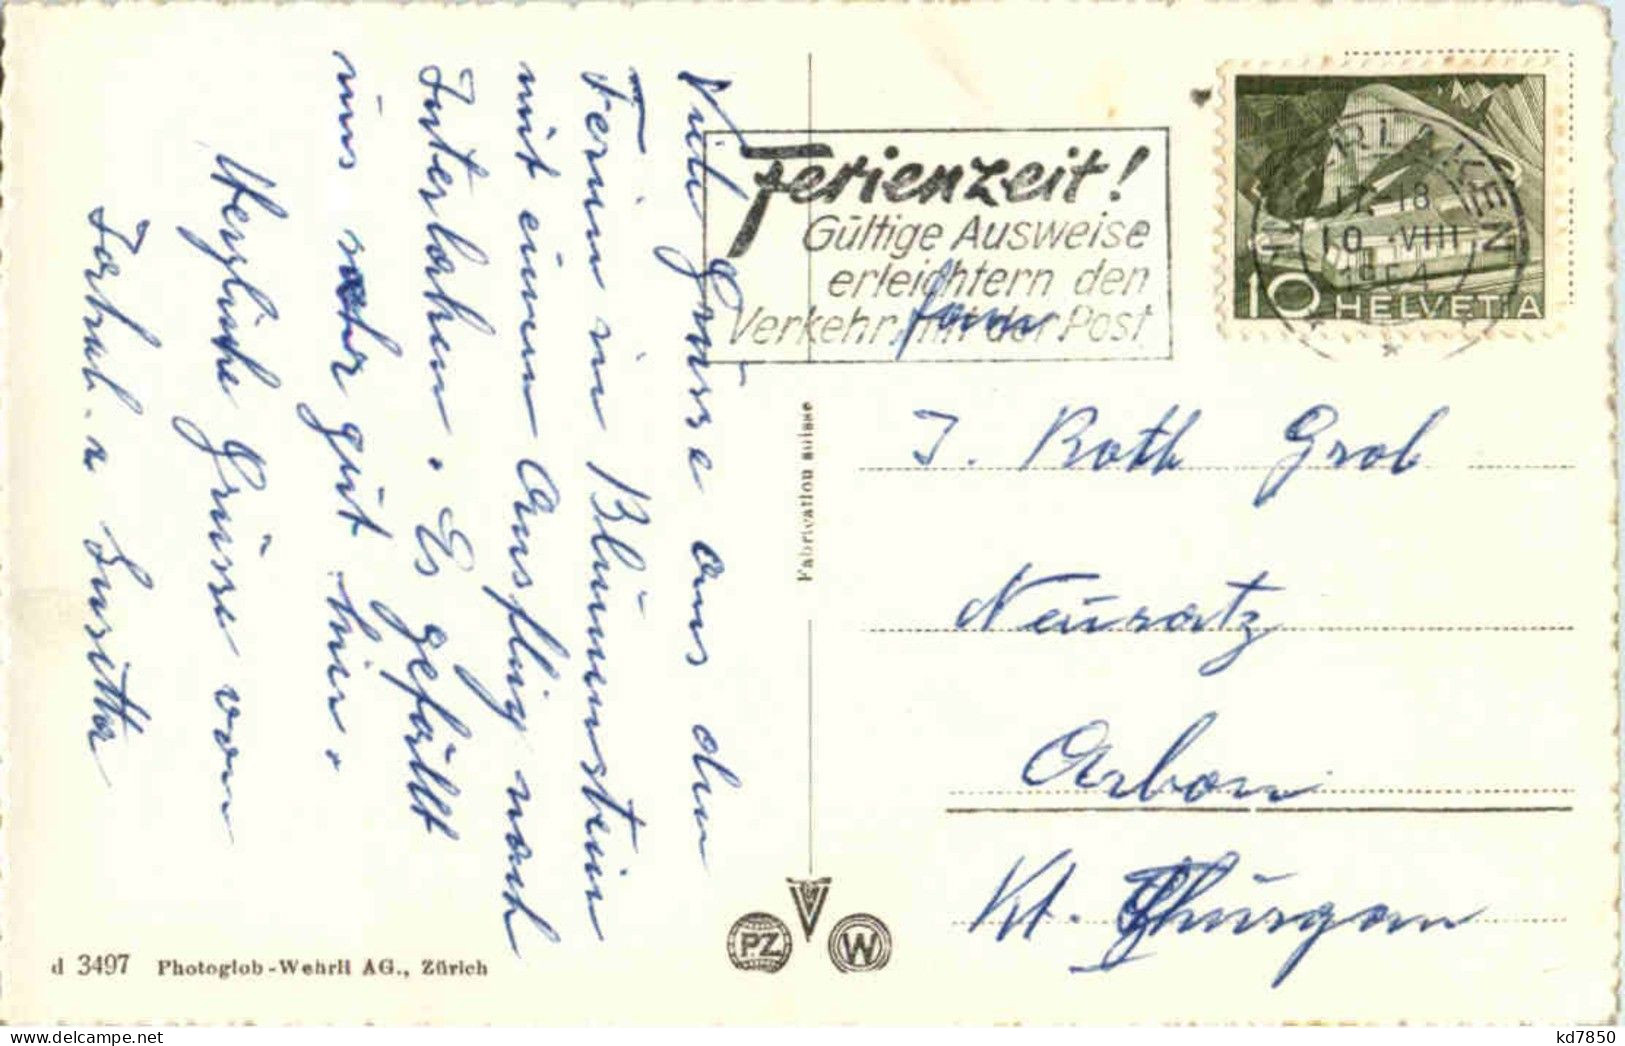 Viele Grüsse aus den
Ferien in Blumenstein
mit einem Ausflug nach
Interlaken. Es gefällt
uns sehr gut hier.
Herzliche Grüsse von
u
Ferienzeit!
Gültige Ausweise
erleichtern den
Verkehr mit der Post
INTERLAKEN
17-18
10. VIII
1954
10 HELVETIA
Fam
J. Roth Grob
Neusatz
Arbon
Kt. Thurgau
Fabrication suisse
PZ
W
d 3497 Photoglob-Wehrli AG., Zürich
kd7850